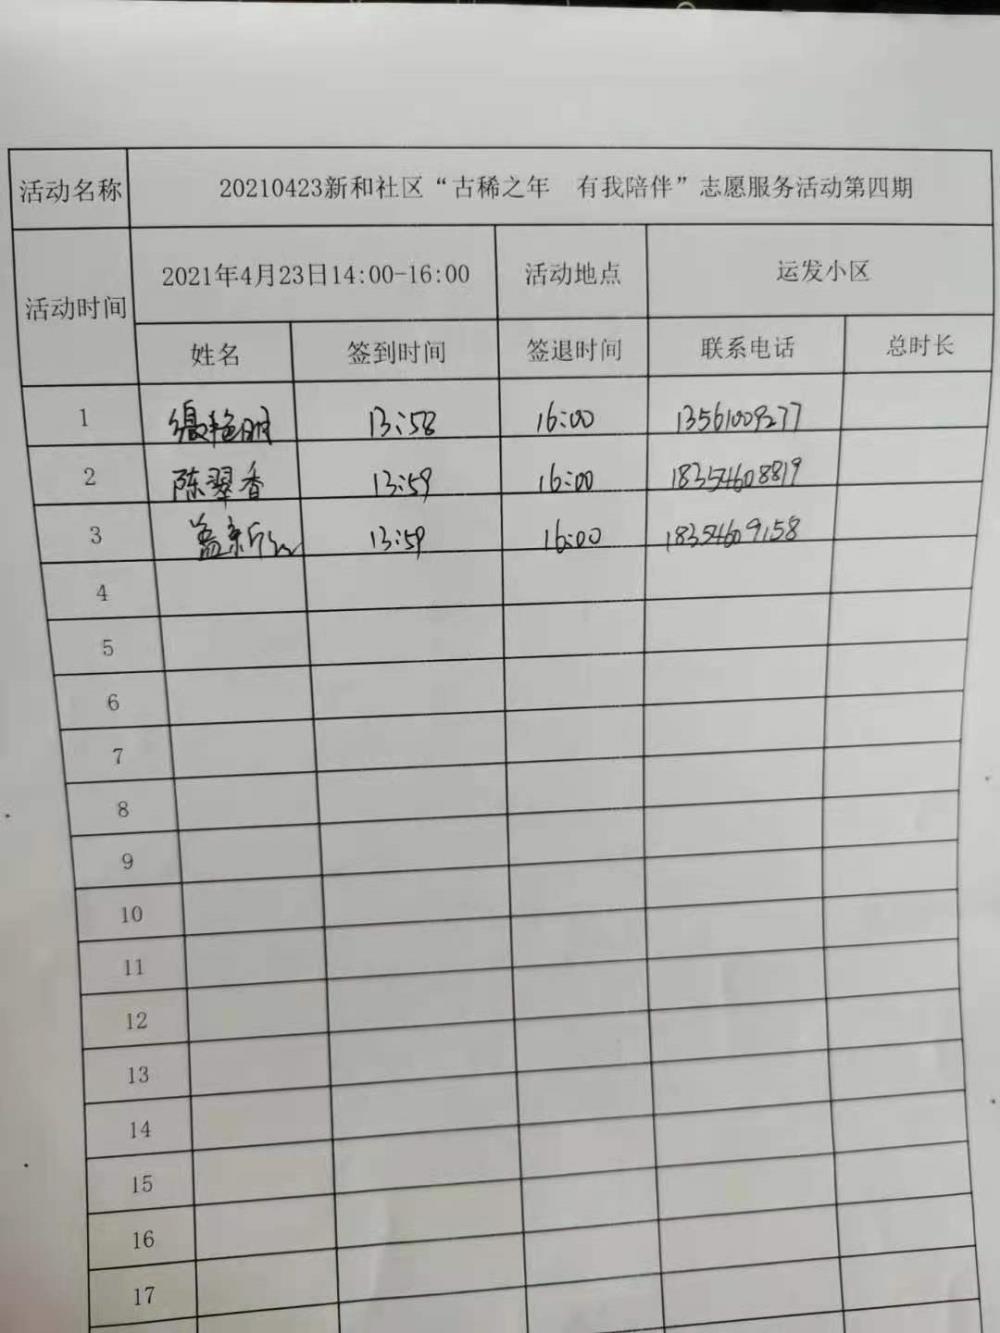 活动名称 20210423新和社区“古稀之年 有我陪伴”志愿服务活动第四期
活动时间 2021年4月23日14:00-16:00 活动地点 运发小区
姓名 签到时间 签退时间 联系电话 总时长
1 13:58 16:00 13561009277
2 陈翠香 13:59 16:00 18354608819
3 13:59 16:00 18354609158
4
5
6
7
8
9
10
11
12
13
14
15
16
17